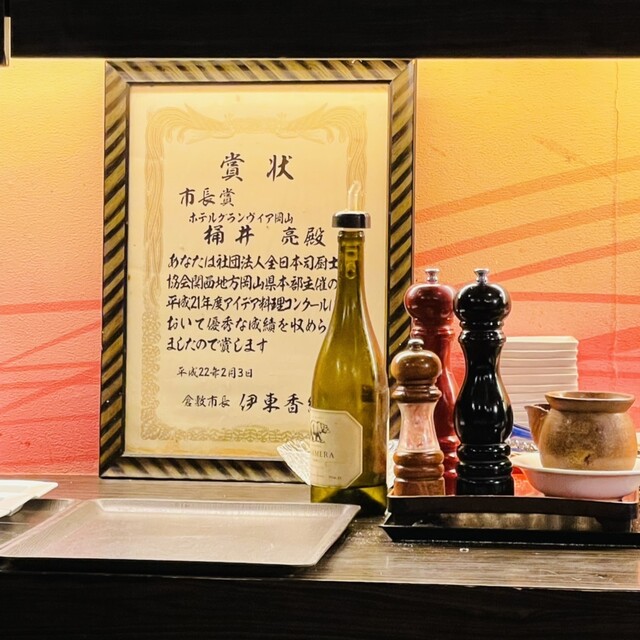 賞状
市長賞
ホテルグランヴィア岡山
桶井 亮殿
あなたは社団法人全日本司厨士
協会関西地方岡山県本部主催の
平成21年度アイデア料理コンクールに
おいて優秀な成績を収めら
ましたので賞します
平成22年2月3日
倉敷市長 伊東香